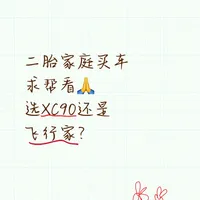 二胎家庭买车
求帮看🙏
选XC90还是
飞行家?